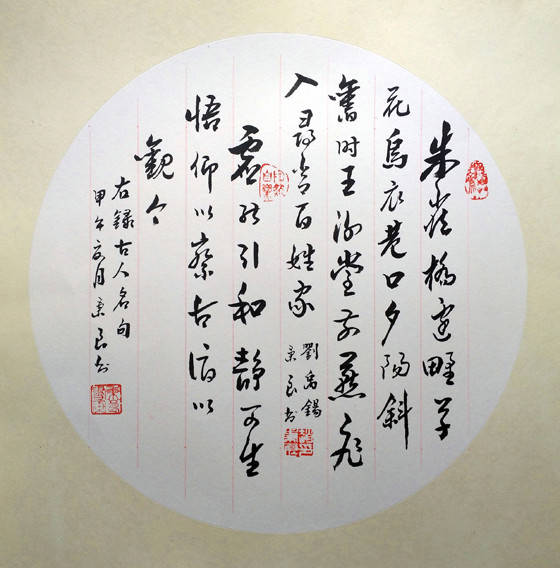 朱雀橋邊野草
花烏衣巷口夕陽斜
舊时王謝堂前燕飛
入尋常百姓家
劉禹錫
景良书
虛能引和靜可生
悟仰以察古俯以
觀今
右錄古人名句
甲午夏月景良书